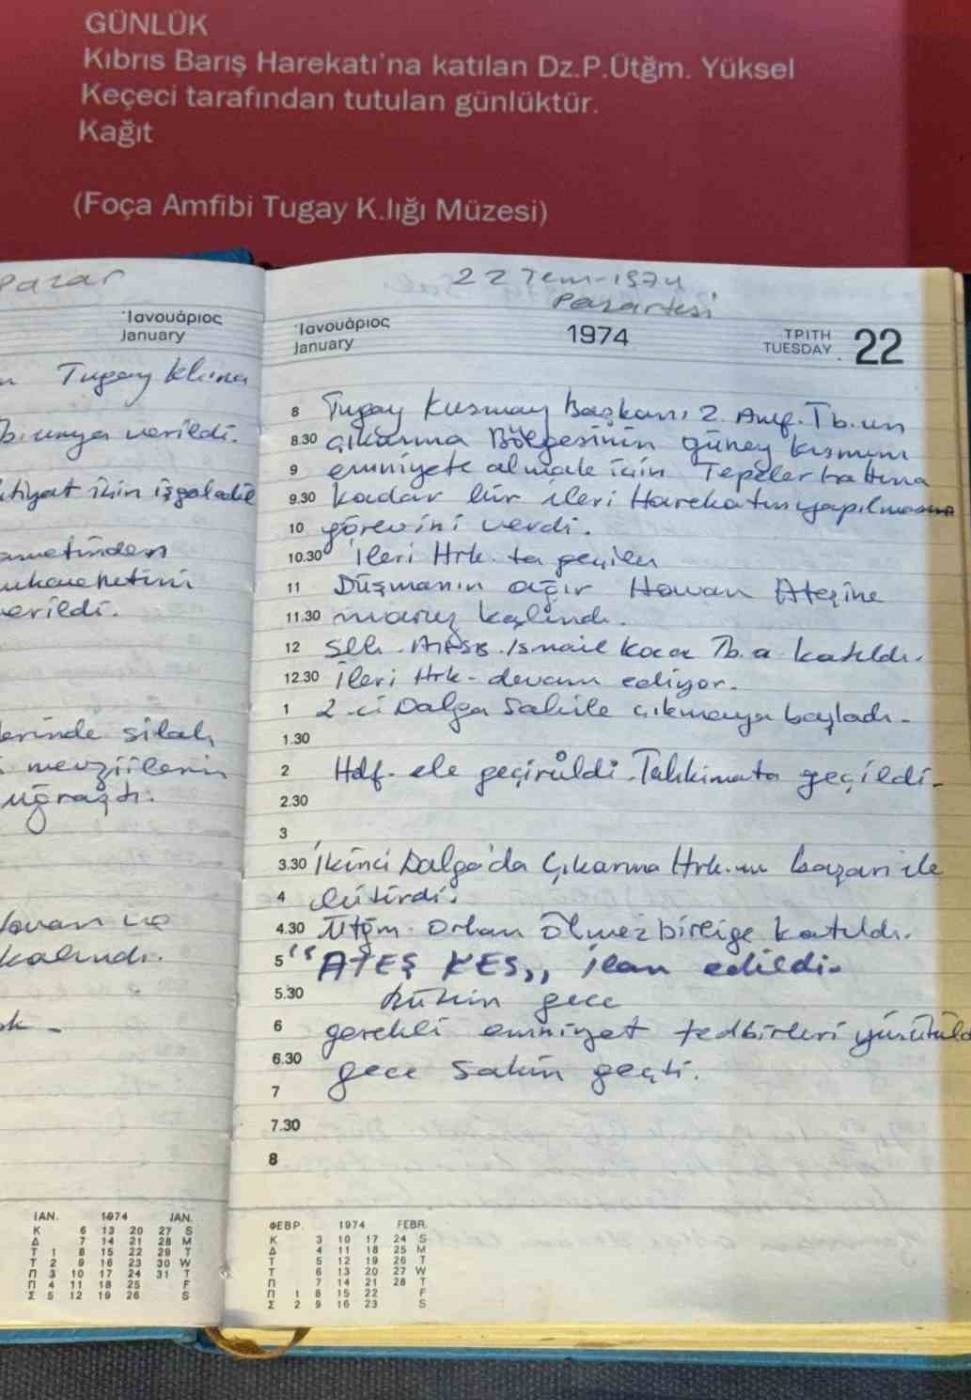 GÜNLÜK
Kıbrıs Barış Harekatı'na katılan Dz.P.Ütğm. Yüksel
Keçeci tarafından tutulan günlüktür.
Kağıt
(Foça Amfibi Tugay K.lığı Müzesi)
Pazar
Ἰανουάριος
January
Tugay
verildi.
ihtiyat için işgal edil
verildi.
erinde silah
mevziilerin
uğraştı.
Havan ve
kalındı.
22 Tem-1974
Pazartesi
Ἰανουάριος
January
1974
ΤΡΙΤΗ
TUESDAY
22
8 Tugay Kurmay Başkanı 2. Amf. Tb.un
8.30 çıkarma Bölgesinin güney kısmını
9 emniyete almak için Tepeler hattına
9.30 kadar bir ileri Harekatın yapılması
10 görevini verdi.
10.30 İleri Hrk. ta geçilen
11 Düşmanın ağır Havan Ateşine
11.30 maruz kalındı.
12 İsmail Koca Tb.a katıldı.
12.30 İleri Hrk- devam ediyor.
1 2-ci Dalga Sahile çıkmaya başladı-
1.30
2 Hdf. ele geçirildi. Tahkimata geçildi-
2.30
3
3.30 İkinci Dalga'da Çıkarma Hrk.nı başarı ile
4 bitirdi.
4.30 Ütğm. Orhan Ölmez birliğe katıldı.
5 "ATEŞ KES,, ilan edildi.
5.30 Bütün gece
6 gerekli emniyet tedbirleri yürütüld
6.30
gece sakin geçti.
7
7.30
8
ΙΑΝ. 1974 JAN.
Κ 6 13 20 27 S
Δ 7 14 21 28 M
Τ 1 8 15 22 29 T
Τ 2 9 16 23 30 W
Π 3 10 17 24 31 T
Π 4 11 18 25 F
Σ 5 12 19 26 S
ΦΕΒΡ. 1974 FEBR.
Κ 3 10 17 24 S
Δ 4 11 18 25 M
Τ 5 12 19 26 T
Τ 6 13 20 27 W
Π 7 14 21 28 T
Π 1 8 15 22 F
Σ 2 9 16 23 S